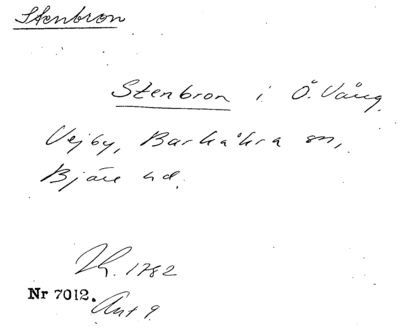 Stenbron
Stenbron i Ö. Vång
Vejby, Barkåkra sn,
Bjäre hd.
Lh. 1782
Nr 7012.
Akt 9.